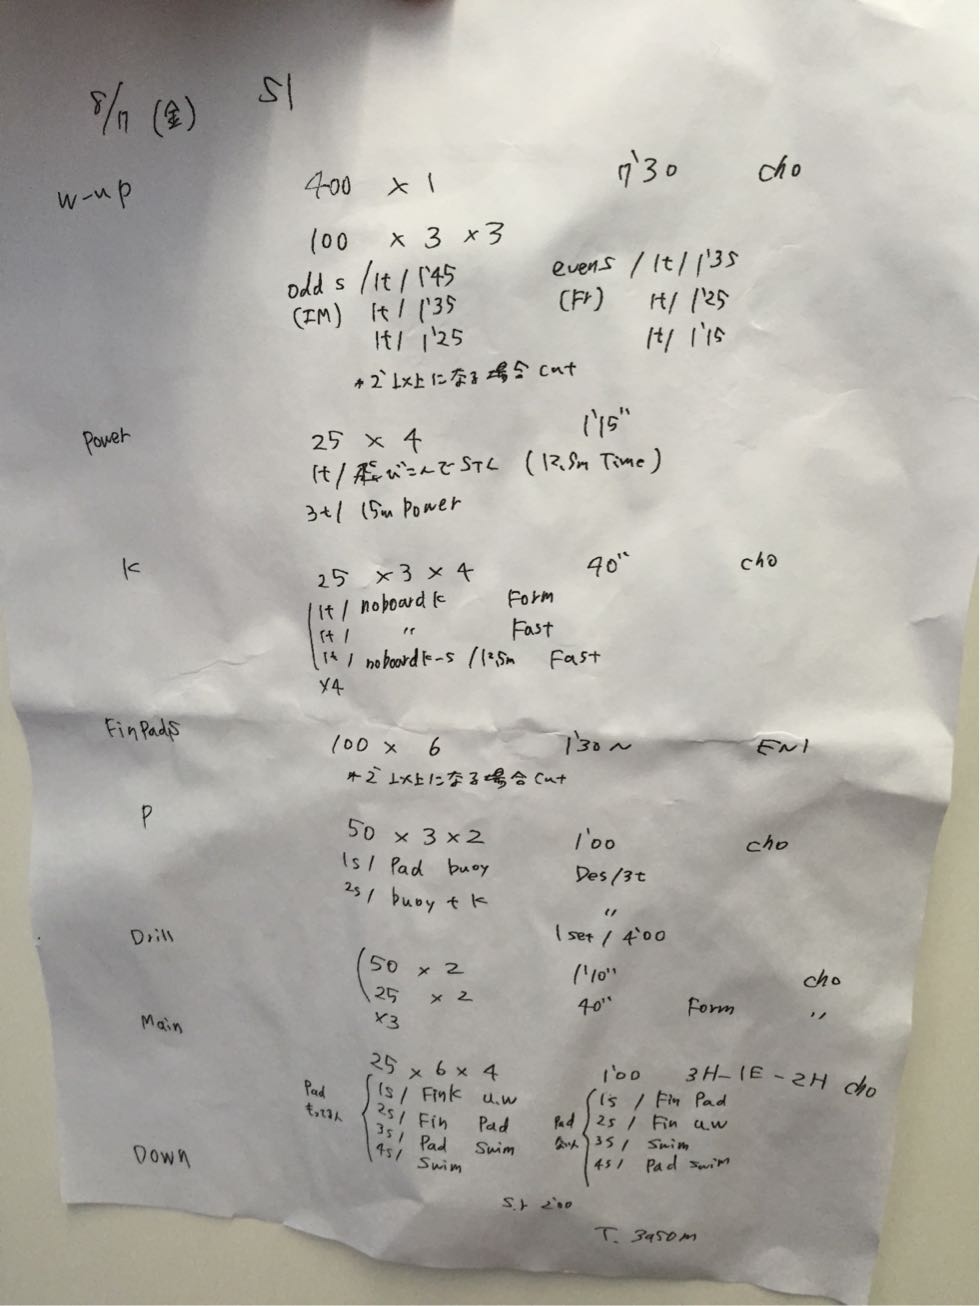 8/17 (金) S1
W-up 400 × 1 7'30 cho
100 × 3 × 3
odds /1t/ 1'45 evens /1t/ 1'35
(IM) 1t/ 1'35 (Fr) 1t/ 1'25
1t/ 1'25 1t/ 1'15
*2"以上になる場合cut
Power 25 × 4 1'15"
1t/ 飛びこんでSTL (12.5m Time)
3t/ 15m Power
K 25 × 3 × 4 40" cho
1t/ noboard k Form
1t/ " Fast
1t/ noboard k-s /12.5m Fast
×4
FinPads 100 × 6 1'30~ EN1
*2"以上になる場合cut
P 50 × 3 × 2 1'00 cho
1s/ Pad buoy Des/3t
2s/ buoy + k "
Drill 1set / 4'00
50 × 2 1'10" cho
25 × 2 40" Form "
×3
Main
25 × 6 × 4 1'00 3H-1E-2H cho
Pad 1s/ Fink u.w 1s/ Fin Pad
もってる人 2s/ Fin Pad Pad 2s/ Fin u.w
3s/ Pad Swim ない人 3s/ Swim
4s/ Swim 4s/ Pad swim
Down
S.t 2'00
T. 3950m